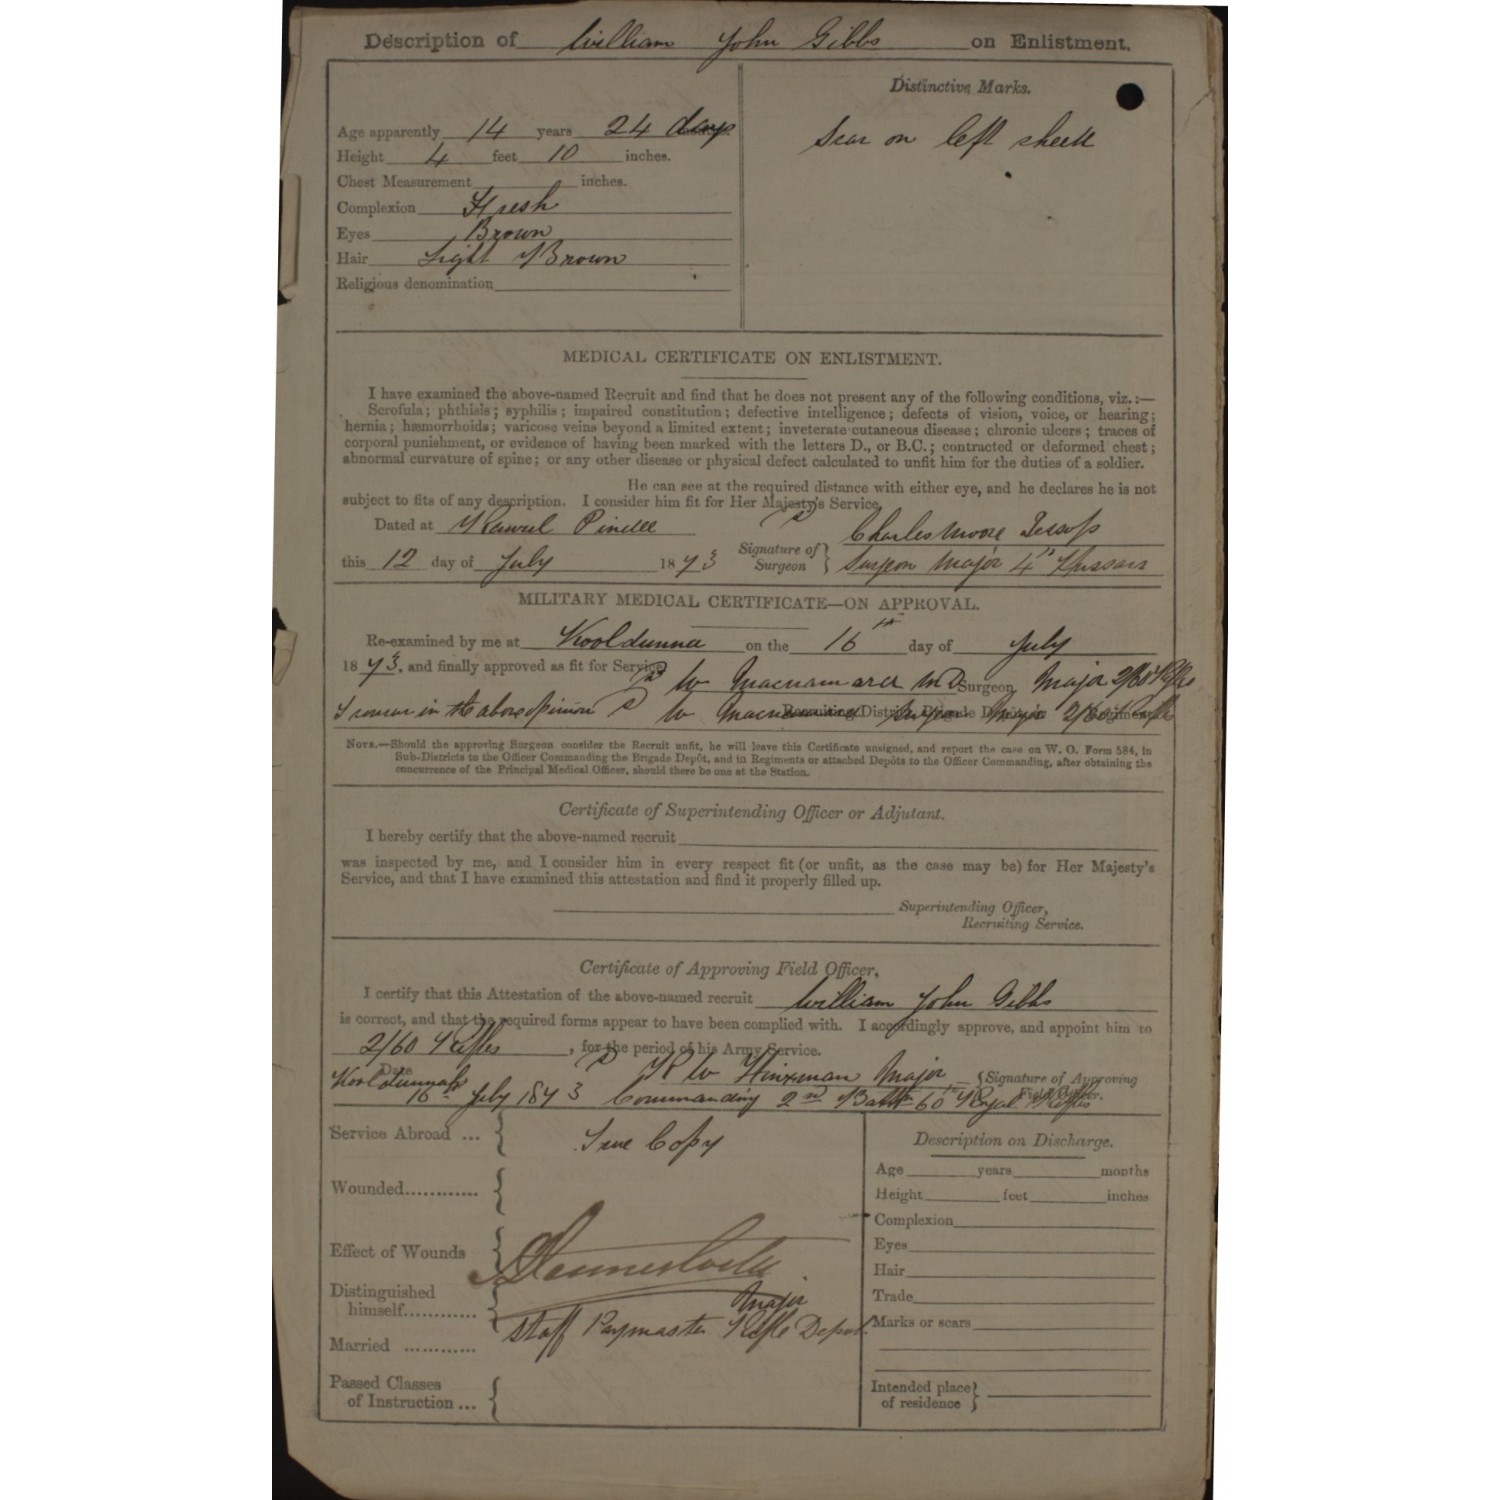 Description of William John Gibbs on Enlistment.
Distinctive Marks.
Scar on left cheek
Age apparently 14 years 24 days
Height 4 feet 10 inches.
Chest Measurement inches.
Complexion Fresh
Eyes Brown
Hair Light Brown
Religious denomination
MEDICAL CERTIFICATE ON ENLISTMENT.
I have examined the above-named Recruit and find that he does not present any of the following conditions, viz.:—
Scrofula; phthisis; syphilis; impaired constitution; defective intelligence; defects of vision, voice, or hearing;
hernia; hæmorrhoids; varicose veins beyond a limited extent; inveterate cutaneous disease; chronic ulcers; traces of
corporal punishment, or evidence of having been marked with the letters D., or B.C.; contracted or deformed chest;
abnormal curvature of spine; or any other disease or physical defect calculated to unfit him for the duties of a soldier.
He can see at the required distance with either eye, and he declares he is not
subject to fits of any description. I consider him fit for Her Majesty's Service,
Dated at Rawul Pindee
Charles Moore Jessop
this 12 day of July 1873 Signature of Surgeon Surgeon Major 4th Hussars
MILITARY MEDICAL CERTIFICATE—ON APPROVAL.
Re-examined by me at Kooldunna on the 16th day of July
1873, and finally approved as fit for Service
W Macnamara MD Surgeon Major 2/60 Rifles
I concur in the above opinion W Macnamara Surgeon Major 2/60 Rifles
NOTE.—Should the approving Surgeon consider the Recruit unfit, he will leave this Certificate unsigned, and report the case on W. O. Form 584, in
Sub-Districts to the Officer Commanding the Brigade Depôt, and in Regiments or attached Depôts to the Officer Commanding, after obtaining the
concurrence of the Principal Medical Officer, should there be one at the Station.
Certificate of Superintending Officer or Adjutant.
I hereby certify that the above-named recruit
was inspected by me, and I consider him in every respect fit (or unfit, as the case may be) for Her Majesty's
Service, and that I have examined this attestation and find it properly filled up.
Superintending Officer,
Recruiting Service.
Certificate of Approving Field Officer.
I certify that this Attestation of the above-named recruit William John Gibbs
is correct, and that the required forms appear to have been complied with. I accordingly approve, and appoint him to
2/60 Rifles, for the period of his Army Service.
Date
Kooldunnah R W Hinxman Major Signature of Approving Field Officer.
16th July 1873 Commanding 2nd Battn 60th Royal Rifles
Service Abroad ... True Copy
Wounded............
Effect of Wounds
Distinguished
himself............
Major
Staff Paymaster Rifle Depot
Married ............
Passed Classes
of Instruction ...
Description on Discharge.
Age years months
Height feet inches
Complexion
Eyes
Hair
Trade
Marks or scars
Intended place
of residence